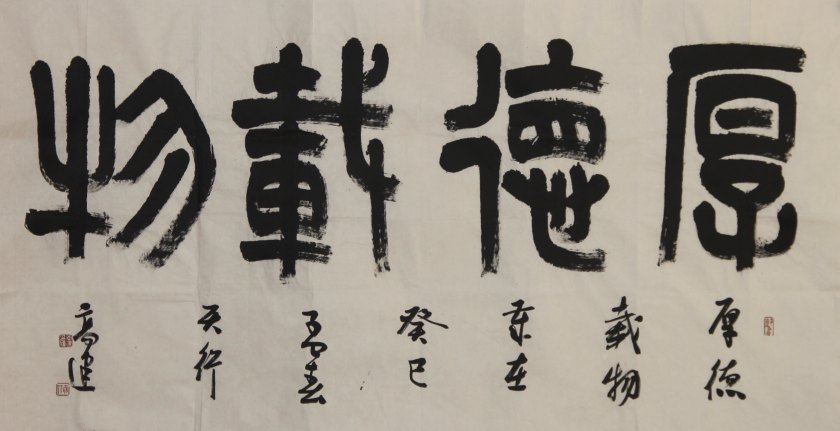 厚德載物
厚德
載物
歲在
癸巳
孟春
天行
高建